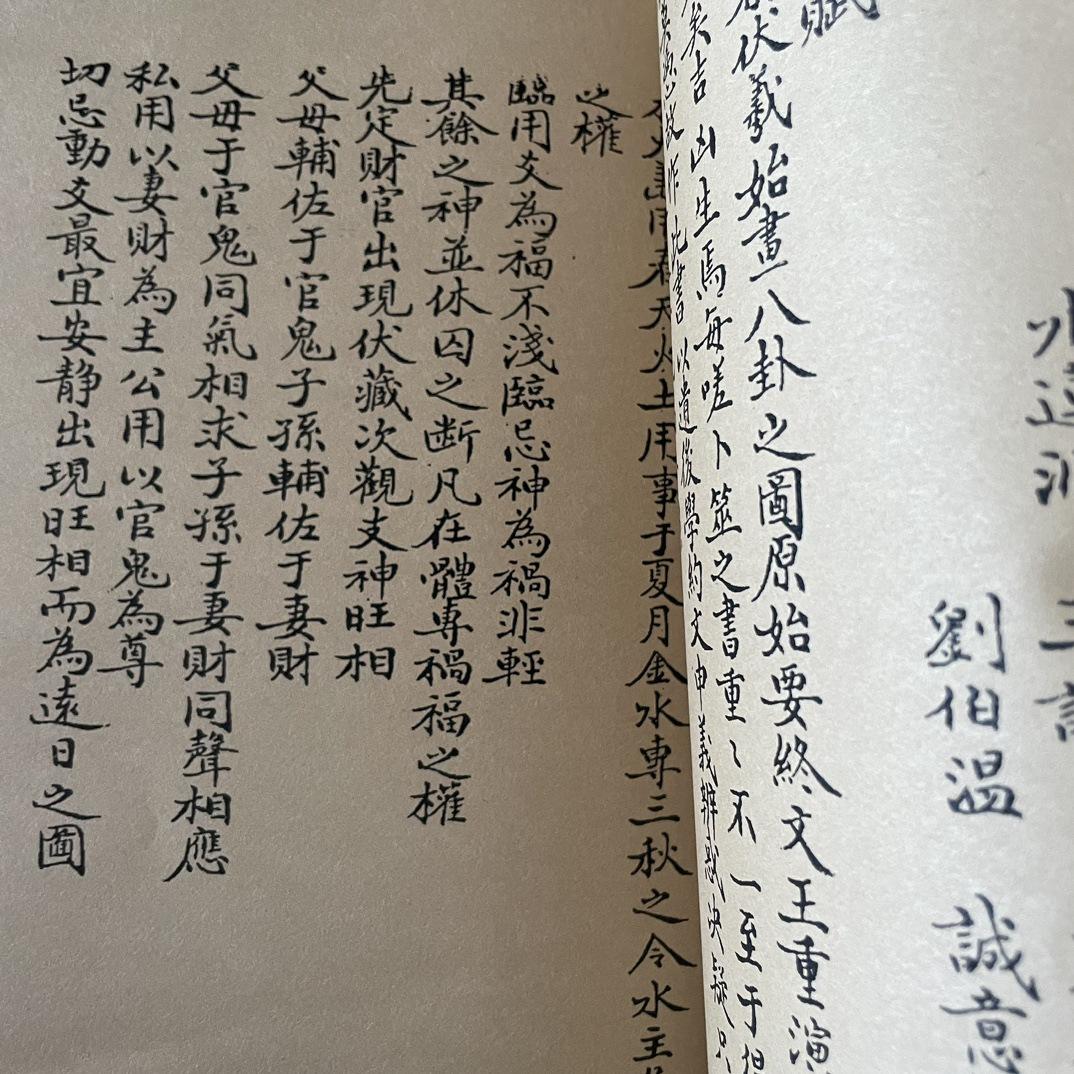 劉伯温 誠意
賦
伏羲始畫八卦之圖原始要終文王重演
矣吉凶生焉每嗟卜筮之書重〻不一至于
故作此書以遺後學約文申義辨惑決疑只
土用事于夏月金水專三秋之令水主
之權
臨用爻為福不淺臨忌神為禍非輕
其餘之神並休囚之断凡在體專禍福之權
先定財官出現伏藏次觀支神旺相
父母輔佐于官鬼子孫輔佐于妻財
父母于官鬼同氣相求子孫于妻財同聲相應
私用以妻財為主公用以官鬼為尊
切忌動爻最宜安静出現旺相而為遠日之圖